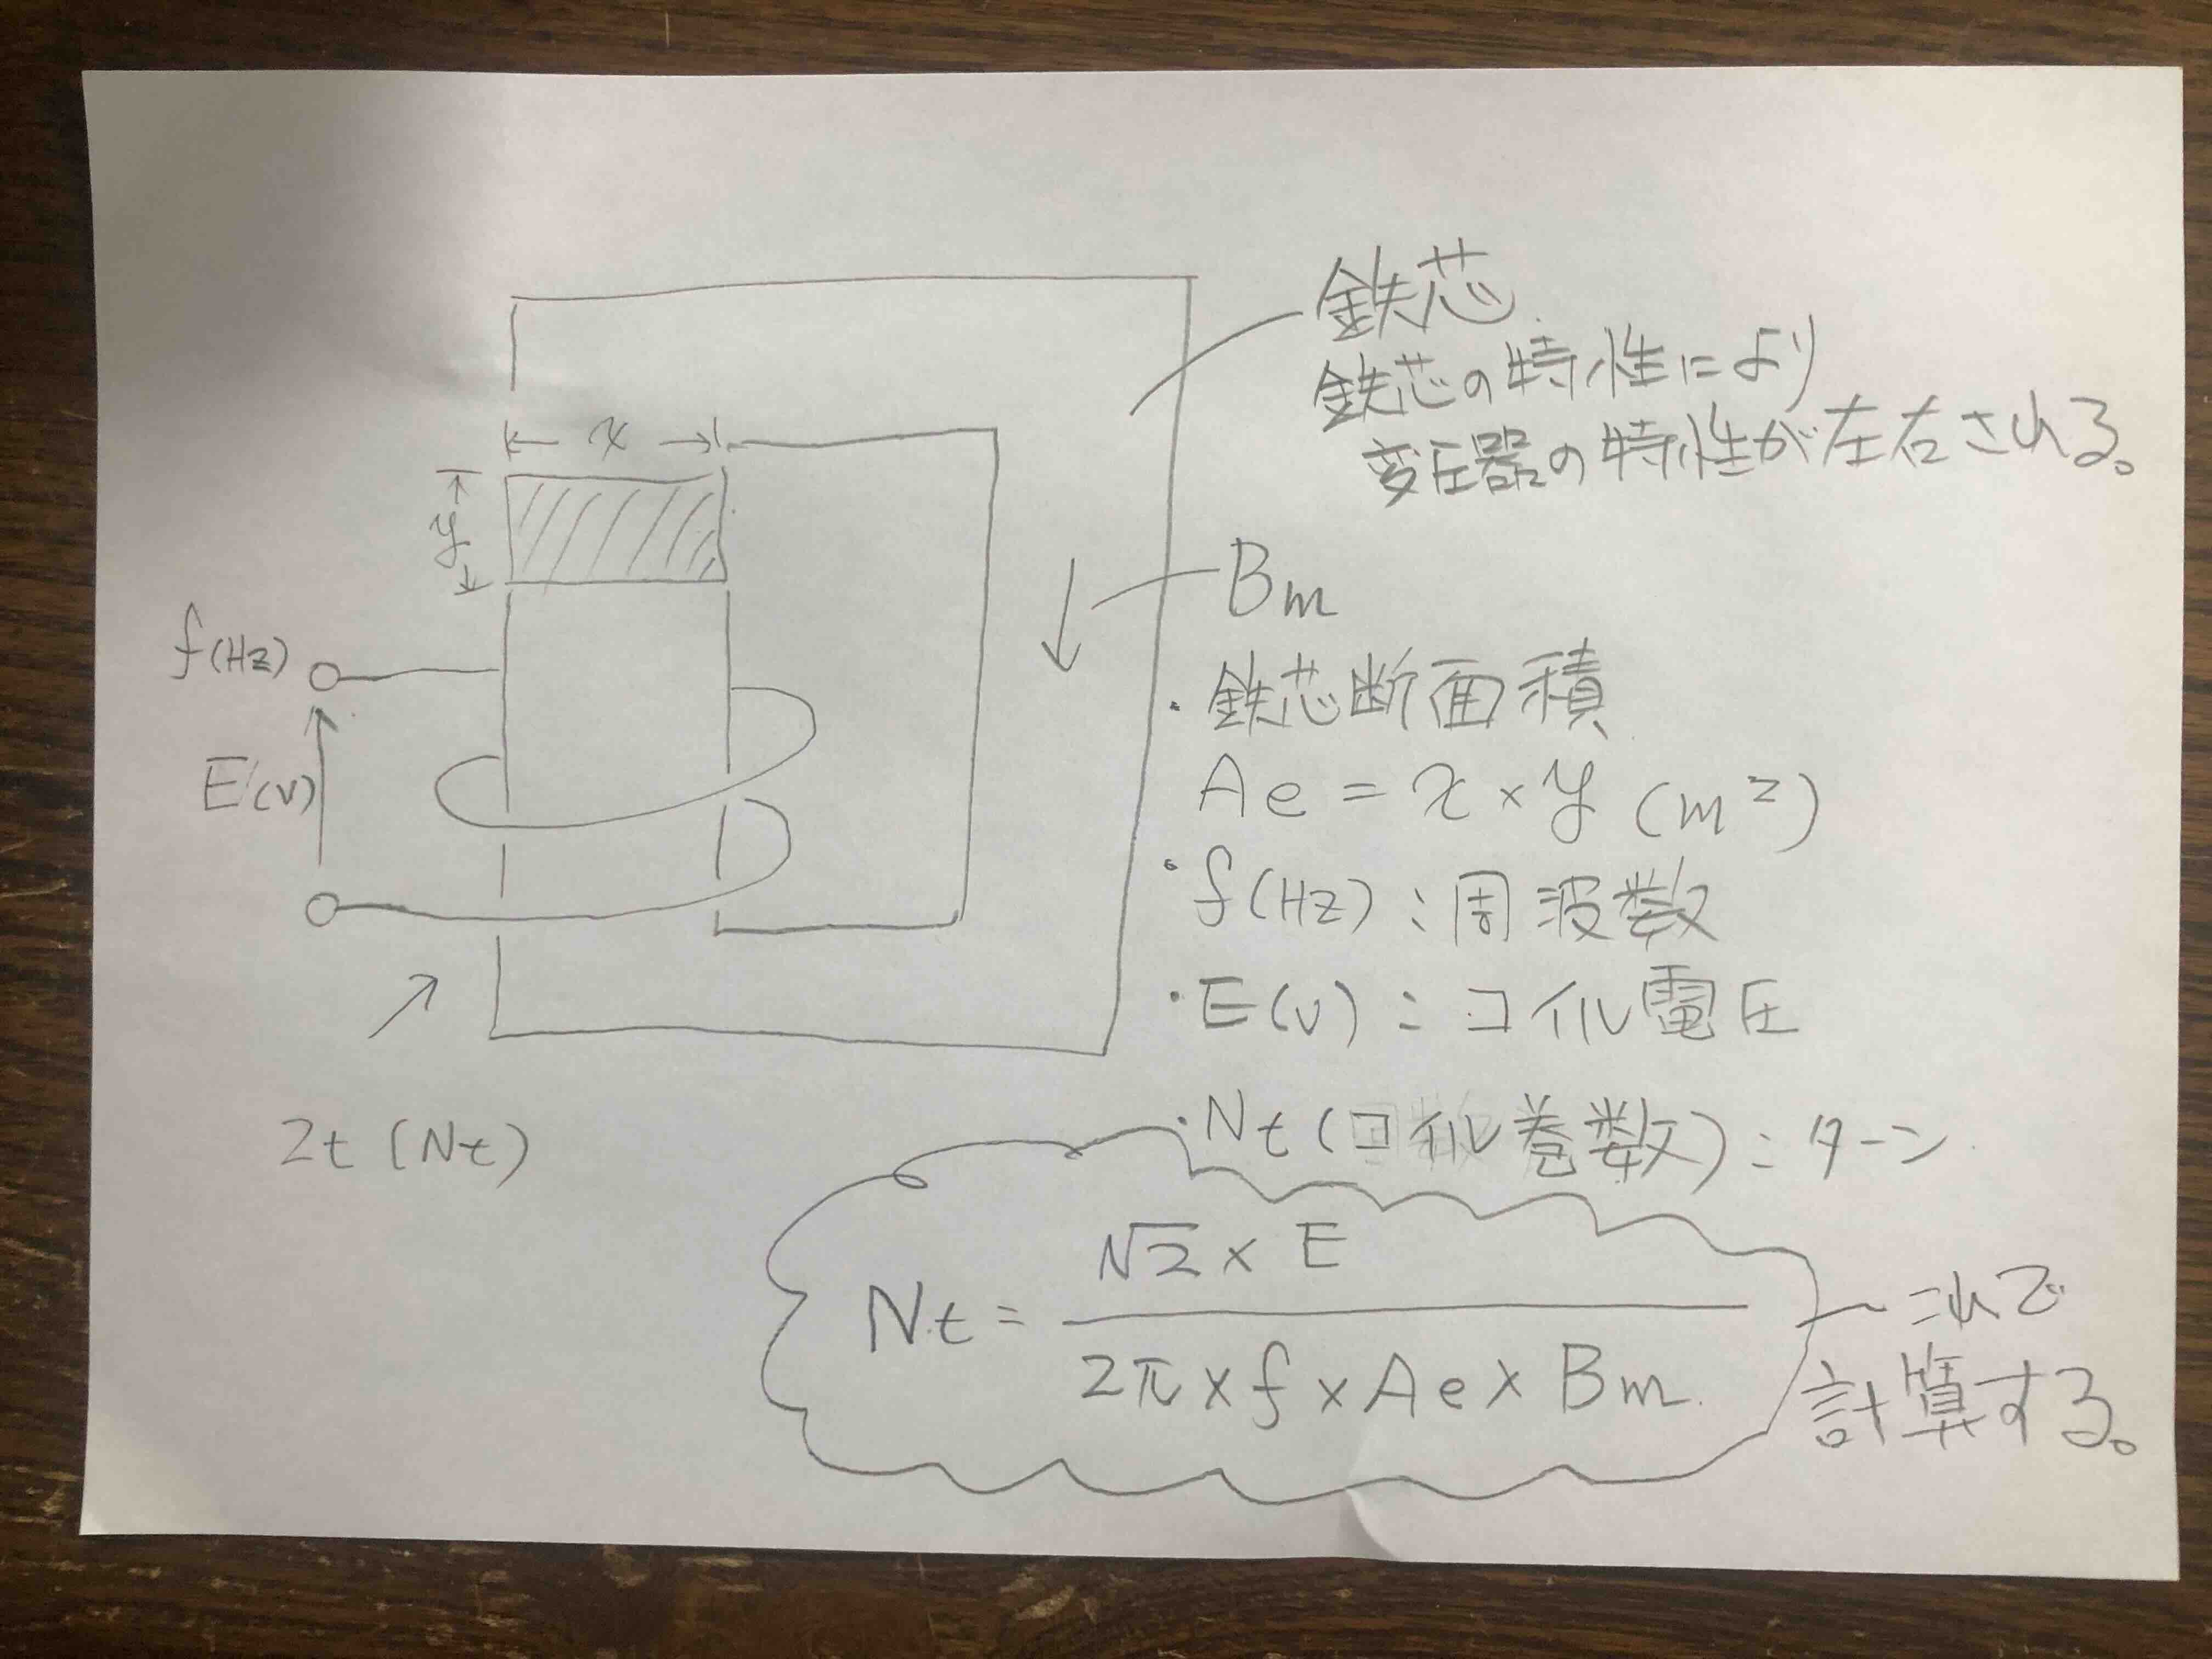 鉄芯
鉄芯の特性により
変圧器の特性が左右される。
x
y
Bm
f(Hz)
E(V)
・鉄芯断面積
Ae = x × y (m²)
・f(Hz):周波数
・E(V):コイル電圧
・Nt(コイル巻数):ターン
2t (Nt)
√2 × E
Nt =
2π × f × Ae × Bm
これで
計算する。